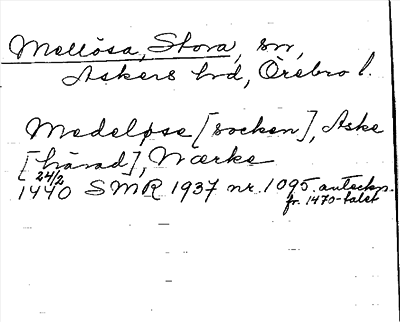 Mellösa, Stora, sn,
Askers hd, Örebro l.
Medeløse [socken], Aske
[härad], Nærke
24/2
1440 SMR 1937 nr. 1095. anteckn.
fr. 1470-talet